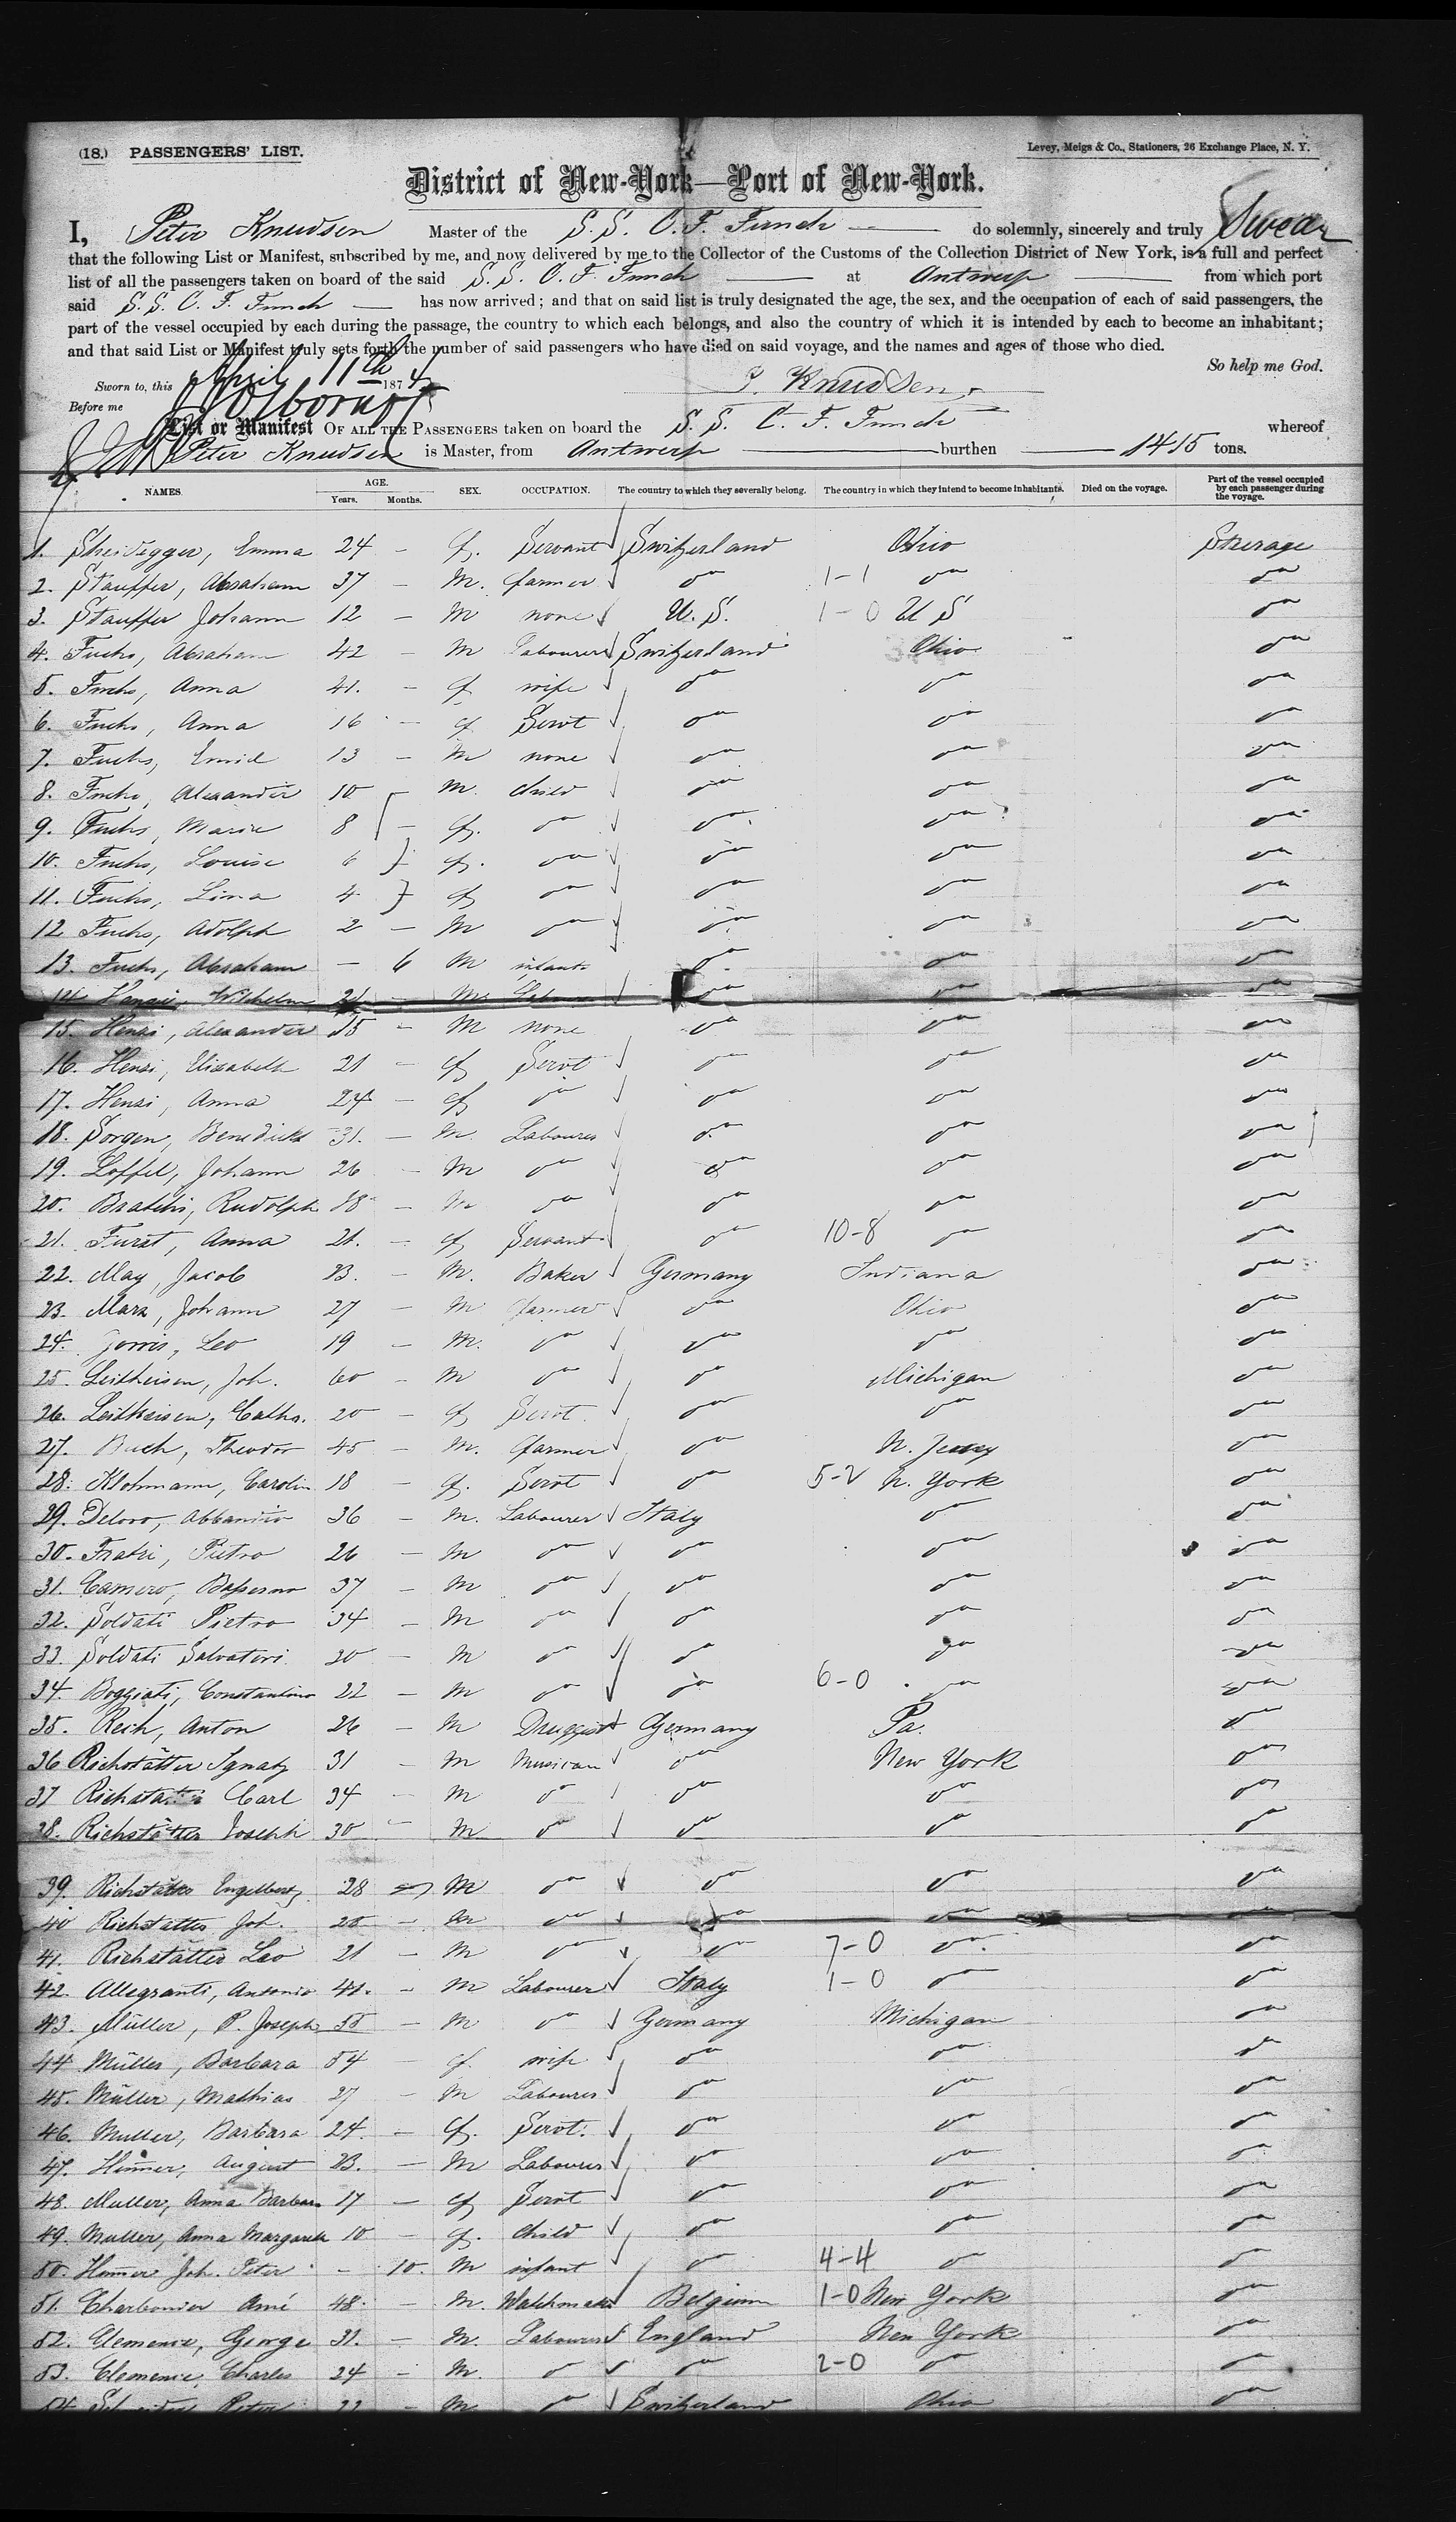 (18.) PASSENGERS' LIST.
Levey, Meigs & Co., Stationers, 26 Exchange Place, N. Y.
District of New-York—Port of New-York.
I, Peter Knudsen Master of the S. S. C. F. Funch do solemnly, sincerely and truly Swear
that the following List or Manifest, subscribed by me, and now delivered by me to the Collector of the Customs of the Collection District of New York, is a full and perfect
list of all the passengers taken on board of the said S. S. C. F. Funch at Antwerp from which port
said S. S. C. F. Funch has now arrived; and that on said list is truly designated the age, the sex, and the occupation of each of said passengers, the
part of the vessel occupied by each during the passage, the country to which each belongs, and also the country of which it is intended by each to become an inhabitant;
and that said List or Manifest truly sets forth the number of said passengers who have died on said voyage, and the names and ages of those who died.
So help me God.
Sworn to, this April 11th 1874
P. Knudsen
Before me
List or Manifest OF ALL THE PASSENGERS taken on board the S. S. C. F. Funch whereof
Peter Knudsen is Master, from Antwerp burthen 1415 tons.
NAMES. AGE. Years. Months. SEX. OCCUPATION. The country to which they severally belong. The country in which they intend to become inhabitants. Died on the voyage. Part of the vessel occupied by each passenger during the voyage.
1. Sheidegger, Emma 24 - f. Servant Switzerland Ohio Steerage
2. Stauffer, Abraham 37 - M. farmer do 1-1 do do
3. Stauffer Johann 12 - M none U. S. 1-0 U S do
4. Fuchs, Abraham 42 - M Labourer Switzerland Ohio do
5. Fuchs, Anna 41. - f wife do do do
6. Fuchs, Anna 16 - f Servt do do do
7. Fuchs, Emil 13 - M none do do do
8. Fuchs, Alexander 10 - M. child do do do
9. Fuchs, Marie 8 - f. do do do do
10. Fuchs, Louise 6 f. do do do do
11. Fuchs, Lina 4 f do do do do
12 Fuchs, Adolph 2 - M do do do do
13. Fuchs, Abraham - 6 M infant do do do
14 Wilhelm 21 - M. Labourer do do do
15. Henzi, Alexander 15 - M none do do do
16. Henzi, Elisabeth 21 - f Servt do do do
17. Henzi, Anna 24 - f do do do do
18. Sorgen, Benedickt 31. - M. Labourer do do do
19. Loffel, Johann 26 - M do do do do
20. Rudolph 18 - M do do do do
21. Furst, Anna 21. - f Servant do 10-8 do do
22. May, Jacob 23. - M. Baker Germany Indiana do
23. Marx, Johann 27 - M farmer do Ohio do
24. Jorris, Leo 19 - M. do do do do
25. Leitheisen, Joh. 60 - M do do Michigan do
26. Leitheisen, Cathr. 20 - f Servt. do do do
27. Buch, Theodor 45 - M. farmer do N. Jersey do
28. Klohmann, Carolin 18 - f. Servt do 5-2 N. York do
29. Delovo, 36 - M. Labourer Italy do do
30. Fratri, Pietro 26 - M do do do do
31. Camero, 37 - M do do do do
32. Soldati Pietro 34 - M do do do do
33. Soldati Salvatori 30 - M do do do do
34. Boggiati, Constantino 22 - M do do 6-0 do do
35. Reih, Anton 26 - M Druggist Germany Pa. do
36 Richstätter Ignatz 31 - M Musician do New York do
37 Carl 34 - M do do do do
38. Richstätter Joseph 30 - M do do do do
39. Richstätter Engelbertz 28 M do do do do
40 Richstätter Joh. 20 - M do do do do
41. Richstätter Leo 21 - M do do 7-0 do do
42. Allegranti, Antonio 41. - M Labourer Italy 1-0 do do
43. Müller, P. Joseph 58 - M do Germany Michigan do
44 Müller, Barbara 54 - f wife do do do
45. Müller, Mathias 27 - M Labourer do do do
46. Muller, Barbara 24. - f. Servt. do do do
47. Himer, August 23. - M Labourer do do do
48. Muller, Anna Barbara 17 - f Servt do do do
49. Muller, Anna Margareth 10 - f. child do do do
50. Himer Joh. Peter - 10. M infant do 4-4 do do
51. Charbonier Amé 48. - M. Watchmaker Belgium 1-0 New York do
52. Clemence, George 31. - M. Labourer England New York do
53. Clemence, Charles 24 - M. do do 2-0 do do
54. Peter - M. do Switzerland Ohio do